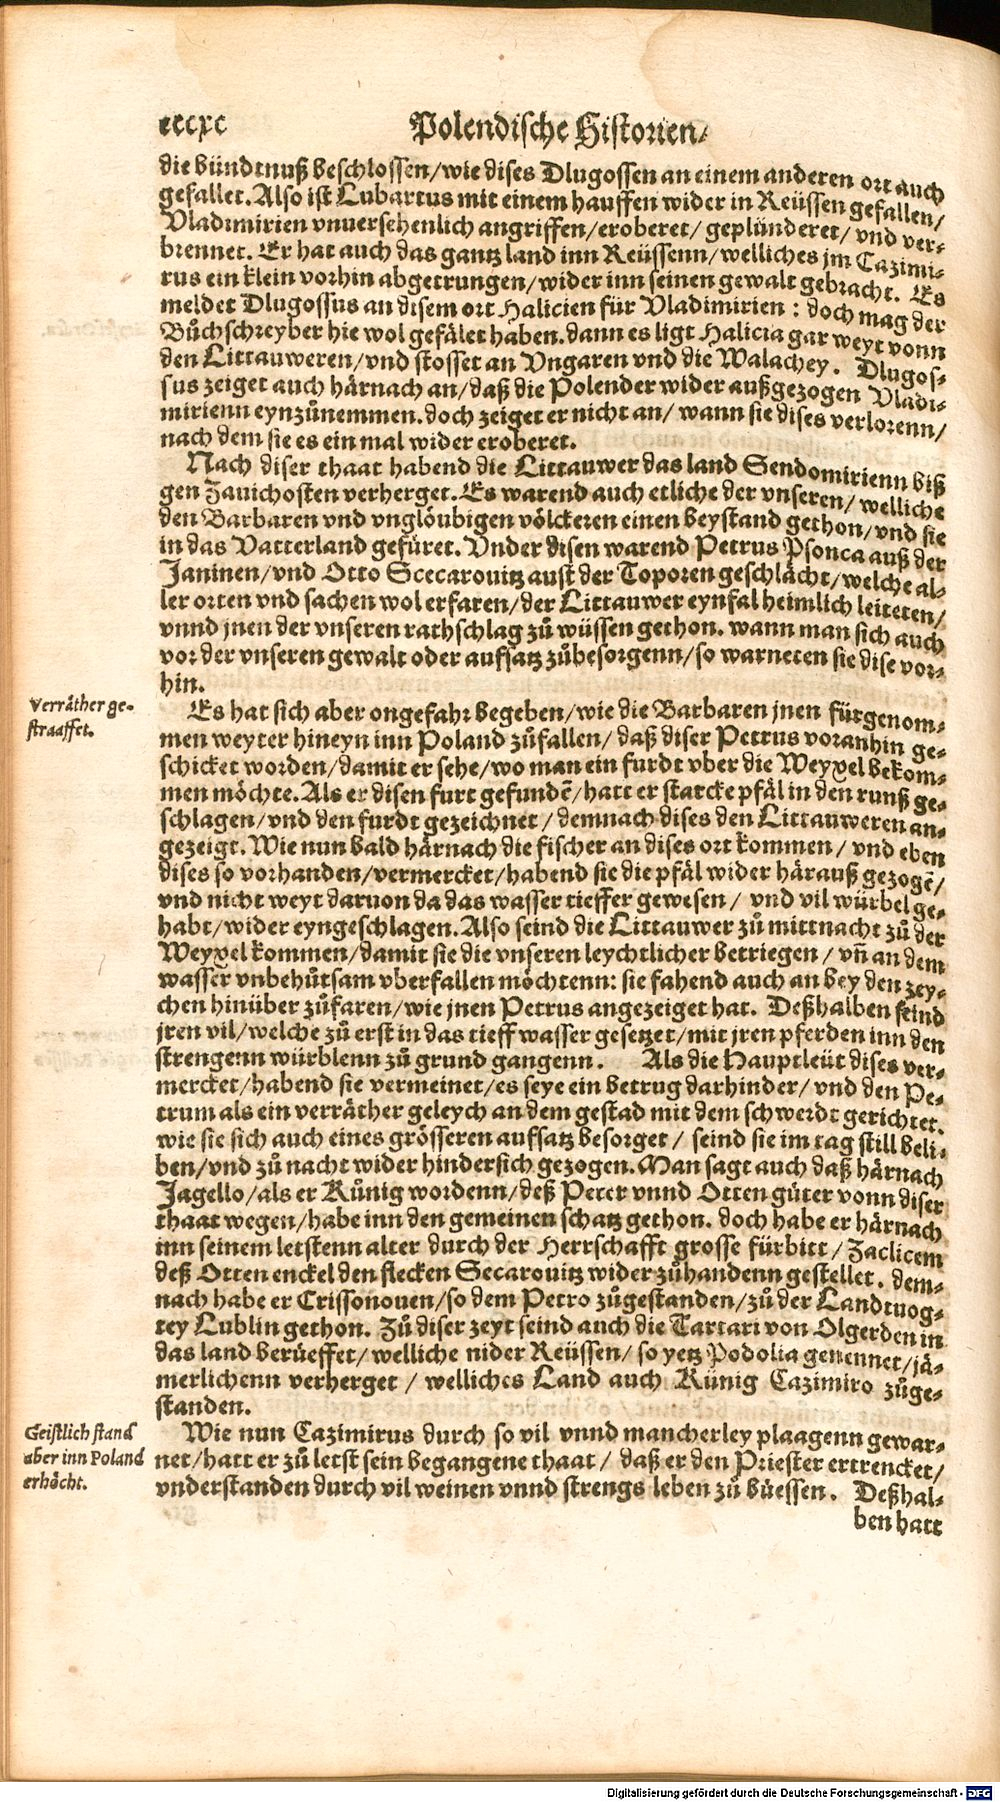 cccxc Polendische Historien/
die bündtnuß beschlossen/wie dises Dlugossen an einem anderen ort auch
gefallet. Also ist Lubartus mit einem hauffen wider in Reüssen gefallen/
Vladimirien vnuersehenlich angriffen/eroberet/ geplünderet/ vnd ver-
brennet. Er hat auch das gantz land inn Reüssenn/welliches jm Cazimi-
rus ein klein vorhin abgetrungen/wider inn seinen gewalt gebracht. Es
meldet Dlugossus an disem ort Halicien für Vladimirien : doch mag der
Bůchschreyber hie wol gefälet haben. dann es ligt Halicia gar weyt vonn
den Littauweren/vnd stosset an Vngaren vnd die Walachey. Dlugos-
sus zeiget auch härnach an/daß die Polender wider außgezogen Vladi-
mirienn eynzůnemmen. doch zeiget er nicht an/ wann sie dises verlorenn/
nach dem sie es ein mal wider eroberet.
Nach diser thaat habend die Littauwer das land Sendomirienn biß
gen Zauichosten verherget. Es warend auch etliche der vnseren/ welliche
den Barbaren vnd vnglöubigen völckeren einen beystand gethon/vnd sie
in das Vatterland gefüret. Vnder disen warend Petrus Psonca auß der
Janinen/vnd Otto Scecarouitz aust der Toporen geschlächt/welche al-
ler orten vnd sachen wol erfaren/der Littauwer eynfal heimlich leiteten/
vnnd jnen der vnseren rathschlag zů wüssen gethon. wann man sich auch
vor der vnseren gewalt oder aufsatz zůbesorgenn/so warneten sie dise vor-
hin.
Verräther ge-
straaffet.
Es hat sich aber ongefahr begeben/wie die Barbaren jnen fürgenom-
men weyter hineyn inn Poland zůfallen/ daß diser Petrus voranhin ge-
schicket worden/damit er sehe/wo man ein furdt vber die Weyxel bekom-
men möchte. Als er disen furt gefundē/hatt er starcke pfäl in den runß ge-
schlagen/vnd den furdt gezeichnet/ demnach dises den Littauweren an-
gezeigt. Wie nun bald härnach die fischer an dises ort kommen/ vnd eben
dises so vorhanden/vermercket/habend sie die pfäl wider härauß gezogē/
vnd nicht weyt daruon da das wasser tieffer gewesen/ vnd vil würbel ge-
habt/wider eyngeschlagen. Also seind die Littauwer zů mittnacht zů der
Weyxel kommen/damit sie die vnseren leychtlicher betriegen/ vñ an dem
wasser vnbehůtsam vberfallen möchtenn: sie fahend auch an bey den zey-
chen hinüber zůfaren/wie jnen Petrus angezeiget hat. Deßhalben seind
jren vil/welche zů erst in das tieff wasser gesetzet/mit jren pferden inn den
strengenn würblenn zů grund gangenn. Als die Hauptleüt dises ver-
mercket/habend sie vermeinet/es seye ein betrug darhinder/ vnd den Pe-
trum als ein verräther geleych an dem gestad mit dem schwerdt gerichtet.
wie sie sich auch eines grösseren aufsatz besorget/ seind sie im tag still beli-
ben/vnd zů nacht wider hindersich gezogen. Man sagt auch daß härnach
Jagello/als er Künig wordenn/deß Peter vnnd Otten güter vonn diser
thaat wegen/habe inn den gemeinen schatz gethon. doch habe er härnach
inn seinem letstenn alter durch der Herrschafft grosse fürbitt/ Zaclicem
deß Otten enckel den flecken Secarouitz wider zůhandenn gestellet. dem-
nach habe er Crissonouen/so dem Petro zůgestanden/zů der Landtuog-
tey Lublin gethon. Zů diser zeyt seind auch die Tartari von Olgerden in
das land berüeffet/welliche nider Reüssen/ so yetz Podolia genennet/jä-
merlichenn verherget/ welliches Land auch Künig Cazimiro zůge-
standen.
Geistlich stand
aber inn Poland
erhöcht.
Wie nun Cazimirus durch so vil vnnd mancherley plaagenn gewar-
net/hatt er zů letst sein begangene thaat/ daß er den Priester ertrencket/
vnderstanden durch vil weinen vnnd strengs leben zů büessen. Deßhal-
ben hatt
Digitalisierung gefördert durch die Deutsche Forschungsgemeinschaft - DFG